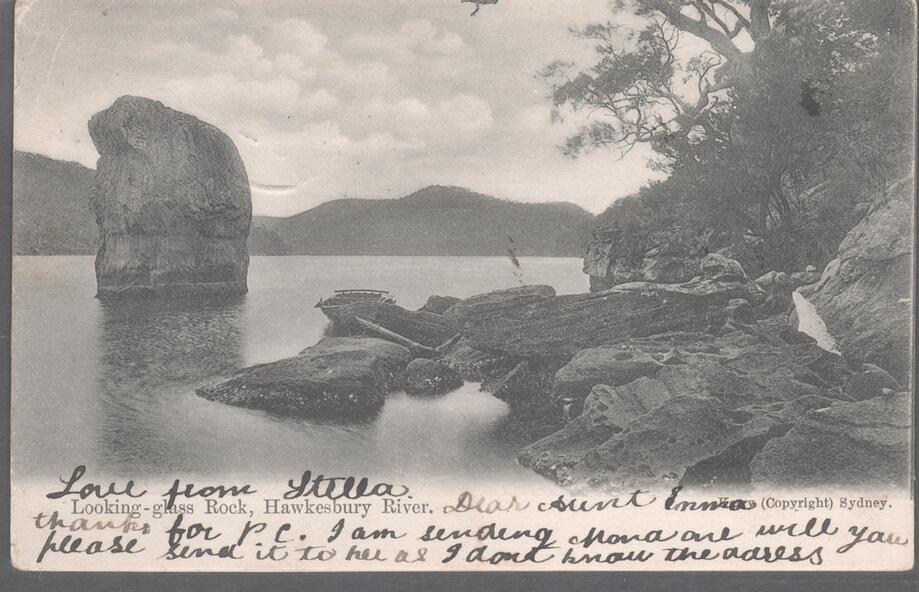 Love from Stella.
Looking-glass Rock, Hawkesbury River. Dear Aunt Emma Kerry (Copyright) Sydney.
thanks for P.C. I am sending Mona one will you
please send it to her as I dont know the adress